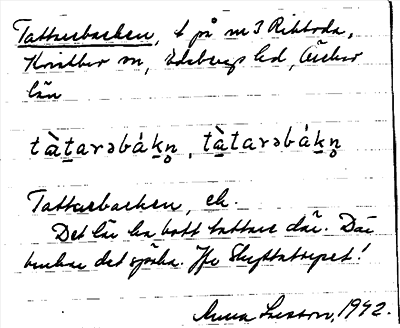 Tattarebacken, t på nr 3 Riktorda,
Kvistbro sn, Edsbergs hd, Örebro
län
tàtarəbákn̥, tàtarəbákn̥
Tattarebacken, ch.
Det lär ha bott tattare där. Där
brukar det spöka. Jfr Skyttatorpet!
Anna Larsson, 1942.